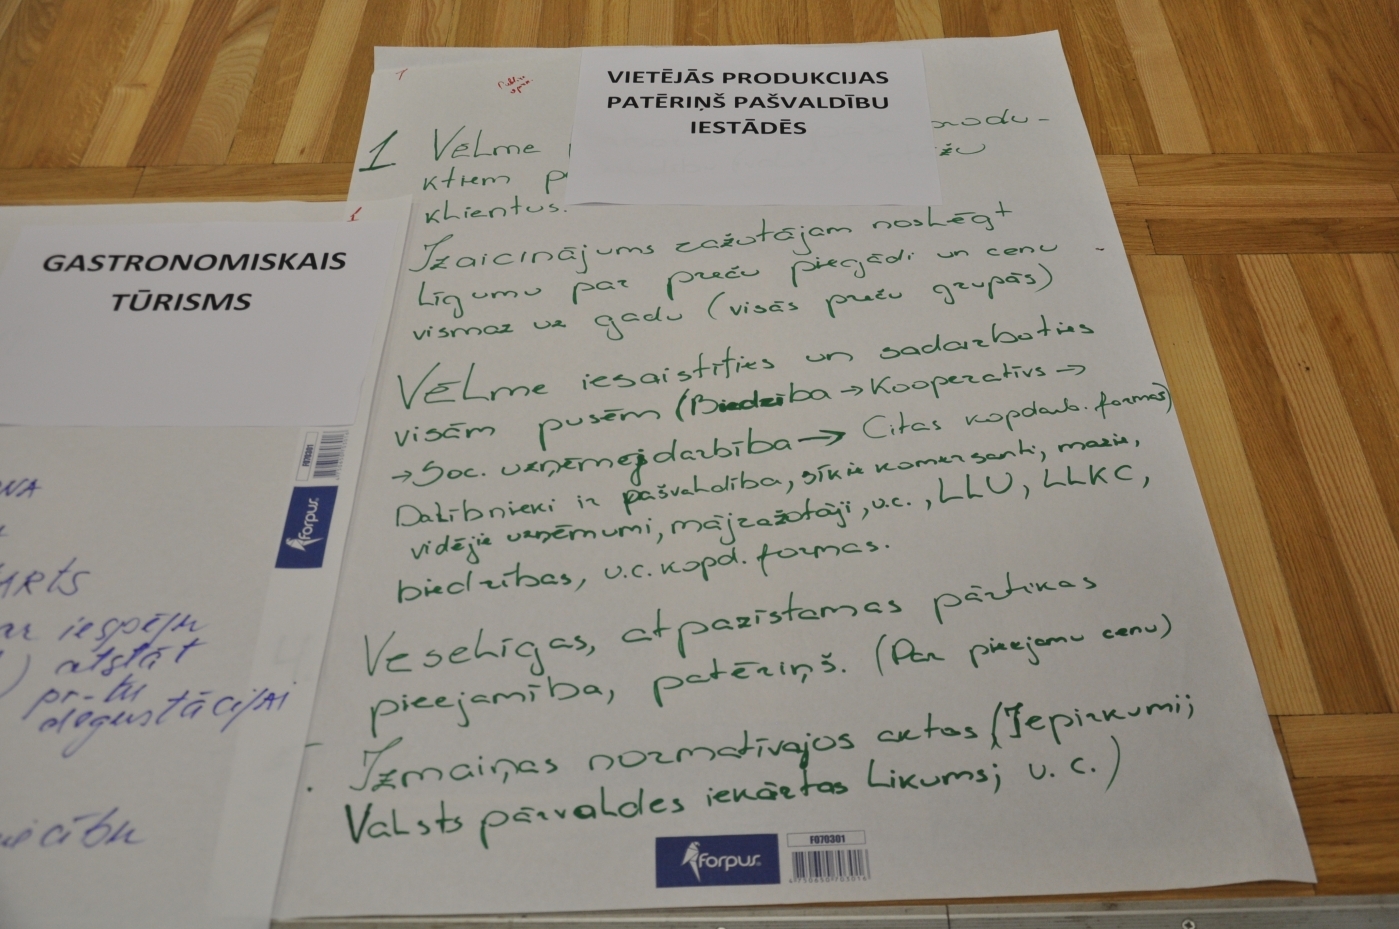 VIETĒJĀS PRODUKCIJAS
PATĒRIŅŠ PAŠVALDĪBU
IESTĀDĒS
1
1 Vēlme produ-
ktiem
klientus.
Izaicinājums ražotājam noslēgt
līgumu par preču piegādi un cenu
vismaz uz gadu (visās preču grupās)
Vēlme iesaistīties un sadarboties
visām pusēm (Biedrība → Kooperatīvs →
→ Soc. uzņēmējdarbība → Citas kopdarb. formas)
Dalībnieki ir pašvaldība, sīkie komersanti, mazie,
vidējie uzņēmumi, mājražotāji, u.c., LLU, LLKC,
biedrības, u.c. kopd. formas.
Veselīgas, atpazīstamas pārtikas
pieejamība, patēriņš. (Par pieejamu cenu)
Izmaiņas normatīvajos aktos (Iepirkumi;
Valsts pārvaldes iekārtas likums; u.c.)
forpus
F070301
1
GASTRONOMISKAIS
TŪRISMS
F070301
forpus
ar iespēju
) atstāt
pr-tu
degustācijai